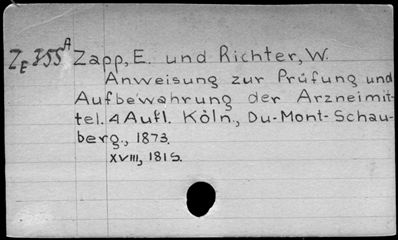 ZE 355A Zapp, E. und Richter, W.
Anweisung zur Prüfung und
Aufbewahrung der Arzneimit-
tel. 4 Aufl. Köln., Du-Mont-Schau-
berg., 1873.
XVIII, 181 S.